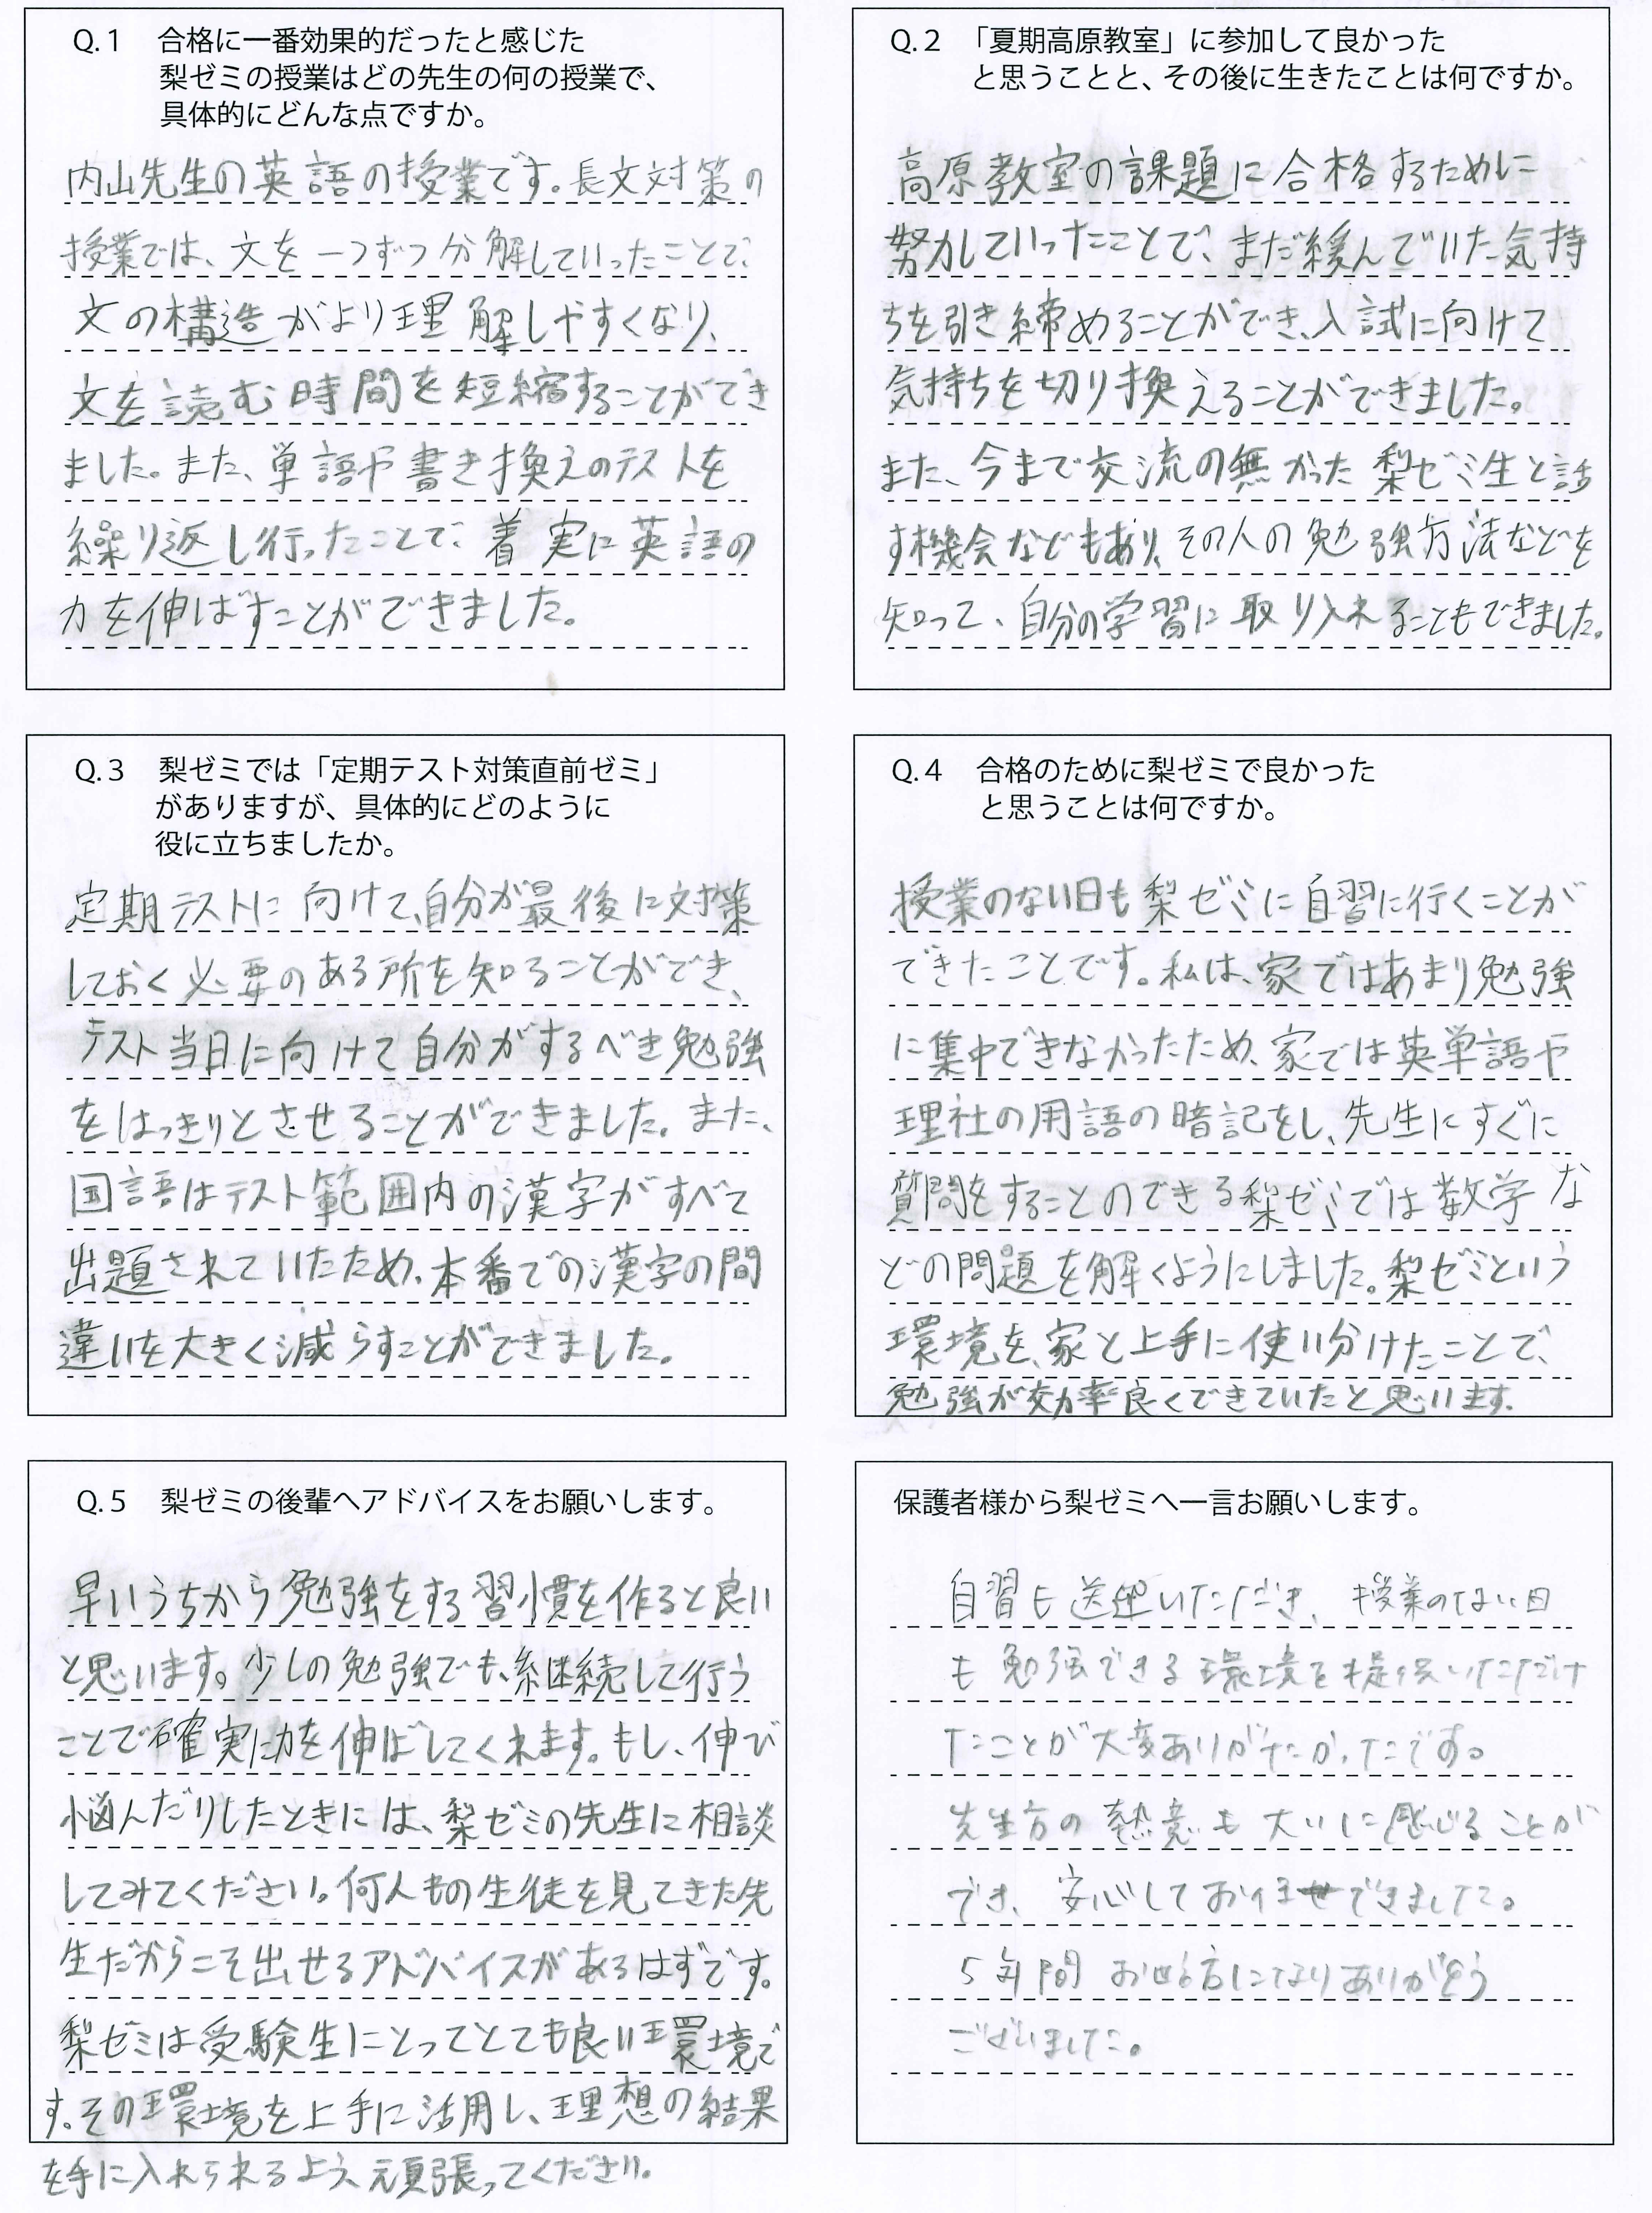 Q.1 合格に一番効果的だったと感じた
梨ゼミの授業はどの先生の何の授業で、
具体的にどんな点ですか。
内山先生の英語の授業です。長文対策の
授業では、文を一つずつ分解していったことで、
文の構造がより理解しやすくなり、
文を読む時間を短縮することができ
ました。また、単語や書き換えのテストを
繰り返し行ったことで、着実に英語の
力を伸ばすことができました。
Q.2 「夏期高原教室」に参加して良かった
と思うことと、その後に生きたことは何ですか。
高原教室の課題に合格するために
努力していったことで、まだ緩んでいた気持
ちを引き締めることができ、入試に向けて
気持ちを切り換えることができました。
また、今まで交流の無かった梨ゼミ生と話
す機会などもあり、その人の勉強方法などを
知って、自分の学習に取り入れることもできました。
Q.3 梨ゼミでは「定期テスト対策直前ゼミ」
がありますが、具体的にどのように
役に立ちましたか。
定期テストに向けて、自分が最後に対策
しておく必要のある所を知ることができ、
テスト当日に向けて自分がするべき勉強
をはっきりとさせることができました。また、
国語はテスト範囲内の漢字がすべて
出題されていたため、本番での漢字の間
違いを大きく減らすことができました。
Q.4 合格のために梨ゼミで良かった
と思うことは何ですか。
授業のない日も梨ゼミに自習に行くことが
できたことです。私は、家ではあまり勉強
に集中できなかったため、家では英単語や
理社の用語の暗記をし、先生にすぐに
質問をすることのできる梨ゼミでは数学な
どの問題を解くようにしました。梨ゼミという
環境を、家と上手に使い分けたことで、
勉強が効率良くできていたと思います。
Q.5 梨ゼミの後輩へアドバイスをお願いします。
早いうちから勉強をする習慣を作ると良い
と思います。少しの勉強でも、継続して行う
ことで確実に力を伸ばしてくれます。もし、伸び
悩んだりしたときには、梨ゼミの先生に相談
してみてください。何人もの生徒を見てきた先
生だからこそ出せるアドバイスがあるはずです。
梨ゼミは受験生にとってとても良い環境で
す。その環境を上手に活用し、理想の結果
を手に入れられるよう、頑張ってください。
保護者様から梨ゼミへ一言お願いします。
自習も送迎いただき、授業のない日
も勉強できる環境を提供いただけ
たことが大変ありがたかったです。
先生方の熱意も大いに感じることが
でき、安心してお任せできました。
5年間お世話になりありがとう
ございました。